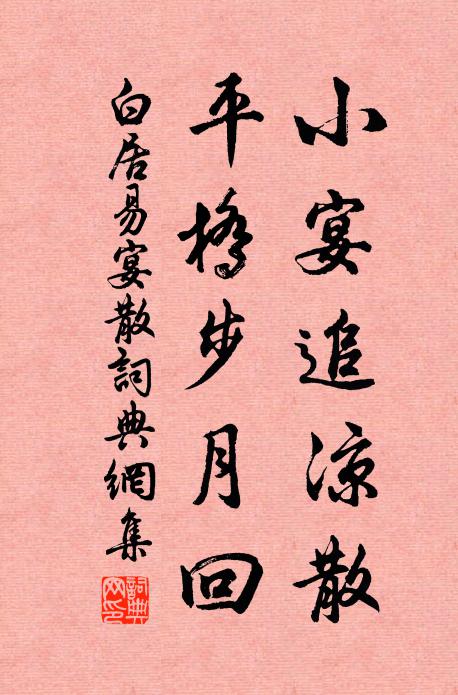 小宴追涼散
平橋步月回
白居易宴散詞典網集
詞典網印